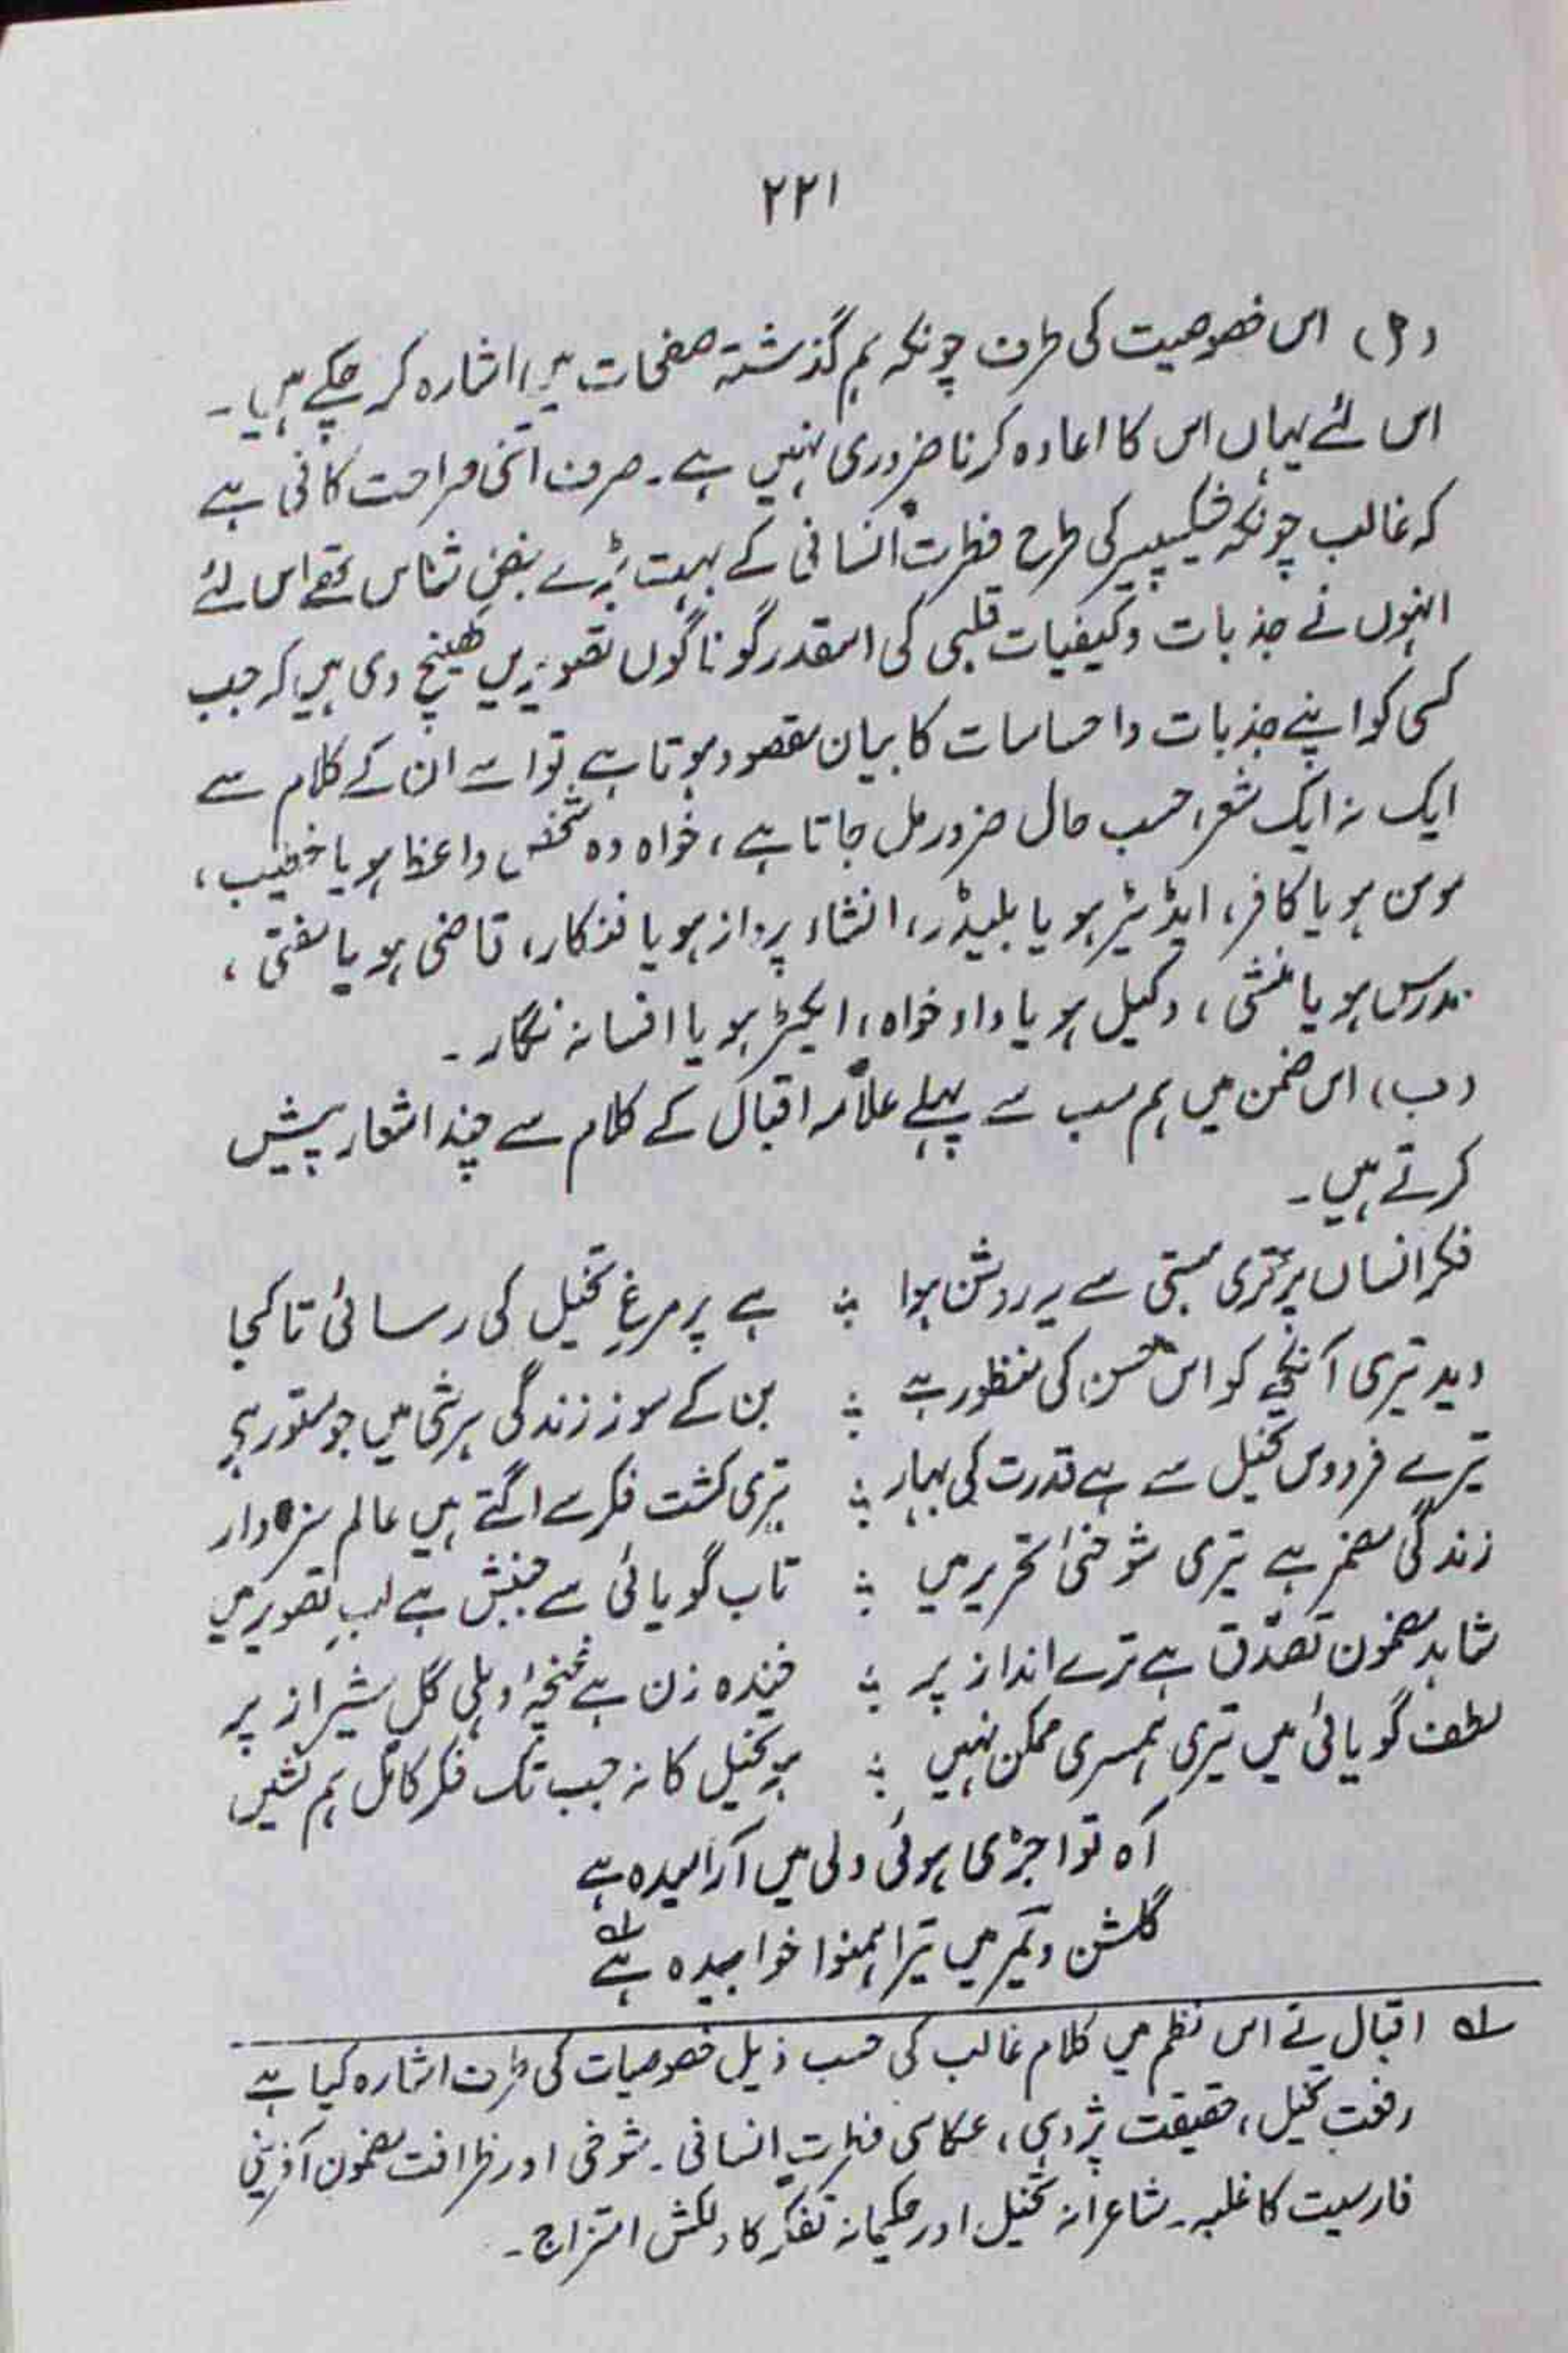 ۲۲۱
(م) اس خصوصیت کی طرف چونکہ ہم گذشتہ صفحات میں اشارہ کر چکے ہیں۔
اس لئے یہاں اس کا اعادہ کرنا ضروری نہیں ہے۔ صرف اتنی صراحت کافی ہے
کہ غالب چونکہ شیکسپیر کی طرح فطرت انسانی کے بہت بڑے نبض شناس تھے اس لئے
انہوں نے جذبات وکیفیات قلبی کی اسقدر گوناگوں تصویریں کھینچ دی ہیں کہ جب
کسی کو اپنے جذبات واحساسات کا بیان مقصود ہوتا ہے تو اسے ان کے کلام سے
ایک نہ ایک شعر، حسب حال ضرور مل جاتا ہے، خواہ وہ شخص واعظ ہو یا خطیب،
مومن ہو یا کافر، ایڈیٹر ہو یا پلیڈر، انشاء پرداز ہو یا فنکار، قاضی ہو یا مفتی،
مدرس ہو یا منشی، وکیل ہو یا داد خواہ، ایکٹر ہو یا افسانہ نگار۔
(ب) اس ضمن میں ہم سب سے پہلے علامہ اقبال کے کلام سے چند اشعار پیش
کرتے ہیں۔
فکر انساں پر تری ہستی سے یہ روشن ہوا ؞ ہے پر مرغِ تخیل کی رسائی تا کجا
دید تیری آنکھ کو اس حسن کی منظور ہے ؞ بن کے سوز زندگی ہر شی میں جو مستور ہے
تیرے فردوس تخیل سے ہے قدرت کی بہار ؞ تیری کشت فکر سے اگتے ہیں عالم سبزہ وار
زندگی مضمر ہے تیری شوخئ تحریر میں ؞ تاب گویائی سے جنبش ہے لبِ تصویر میں
شاہد مضمون تصدّق ہے ترے انداز پر ؞ خندہ زن ہے غنچۂ دہلی گل شیراز پر
لطف گویائی میں تیری ہمسری ممکن نہیں ؞ ہو تخیل کا نہ جب تک فکر کامل ہم نشیں
آہ تو اجڑی ہوئی دلی میں آرامیدہ ہے
گلشن ویمر میں تیرا ہمنوا خوابیدہ ہے ؎۱
؎۱ اقبال نے اس نظم میں کلام غالب کی حسب ذیل خصوصیات کی طرف اشارہ کیا ہے
رفعت تخیل، حقیقت پژوہی، عکاسی فطرتِ انسانی۔ شوخی اور ظرافت مضمون آفرینی
فارسیت کا غلبہ۔ شاعرانہ تخیل اور حکیمانہ تفکر کا دلکش امتزاج۔